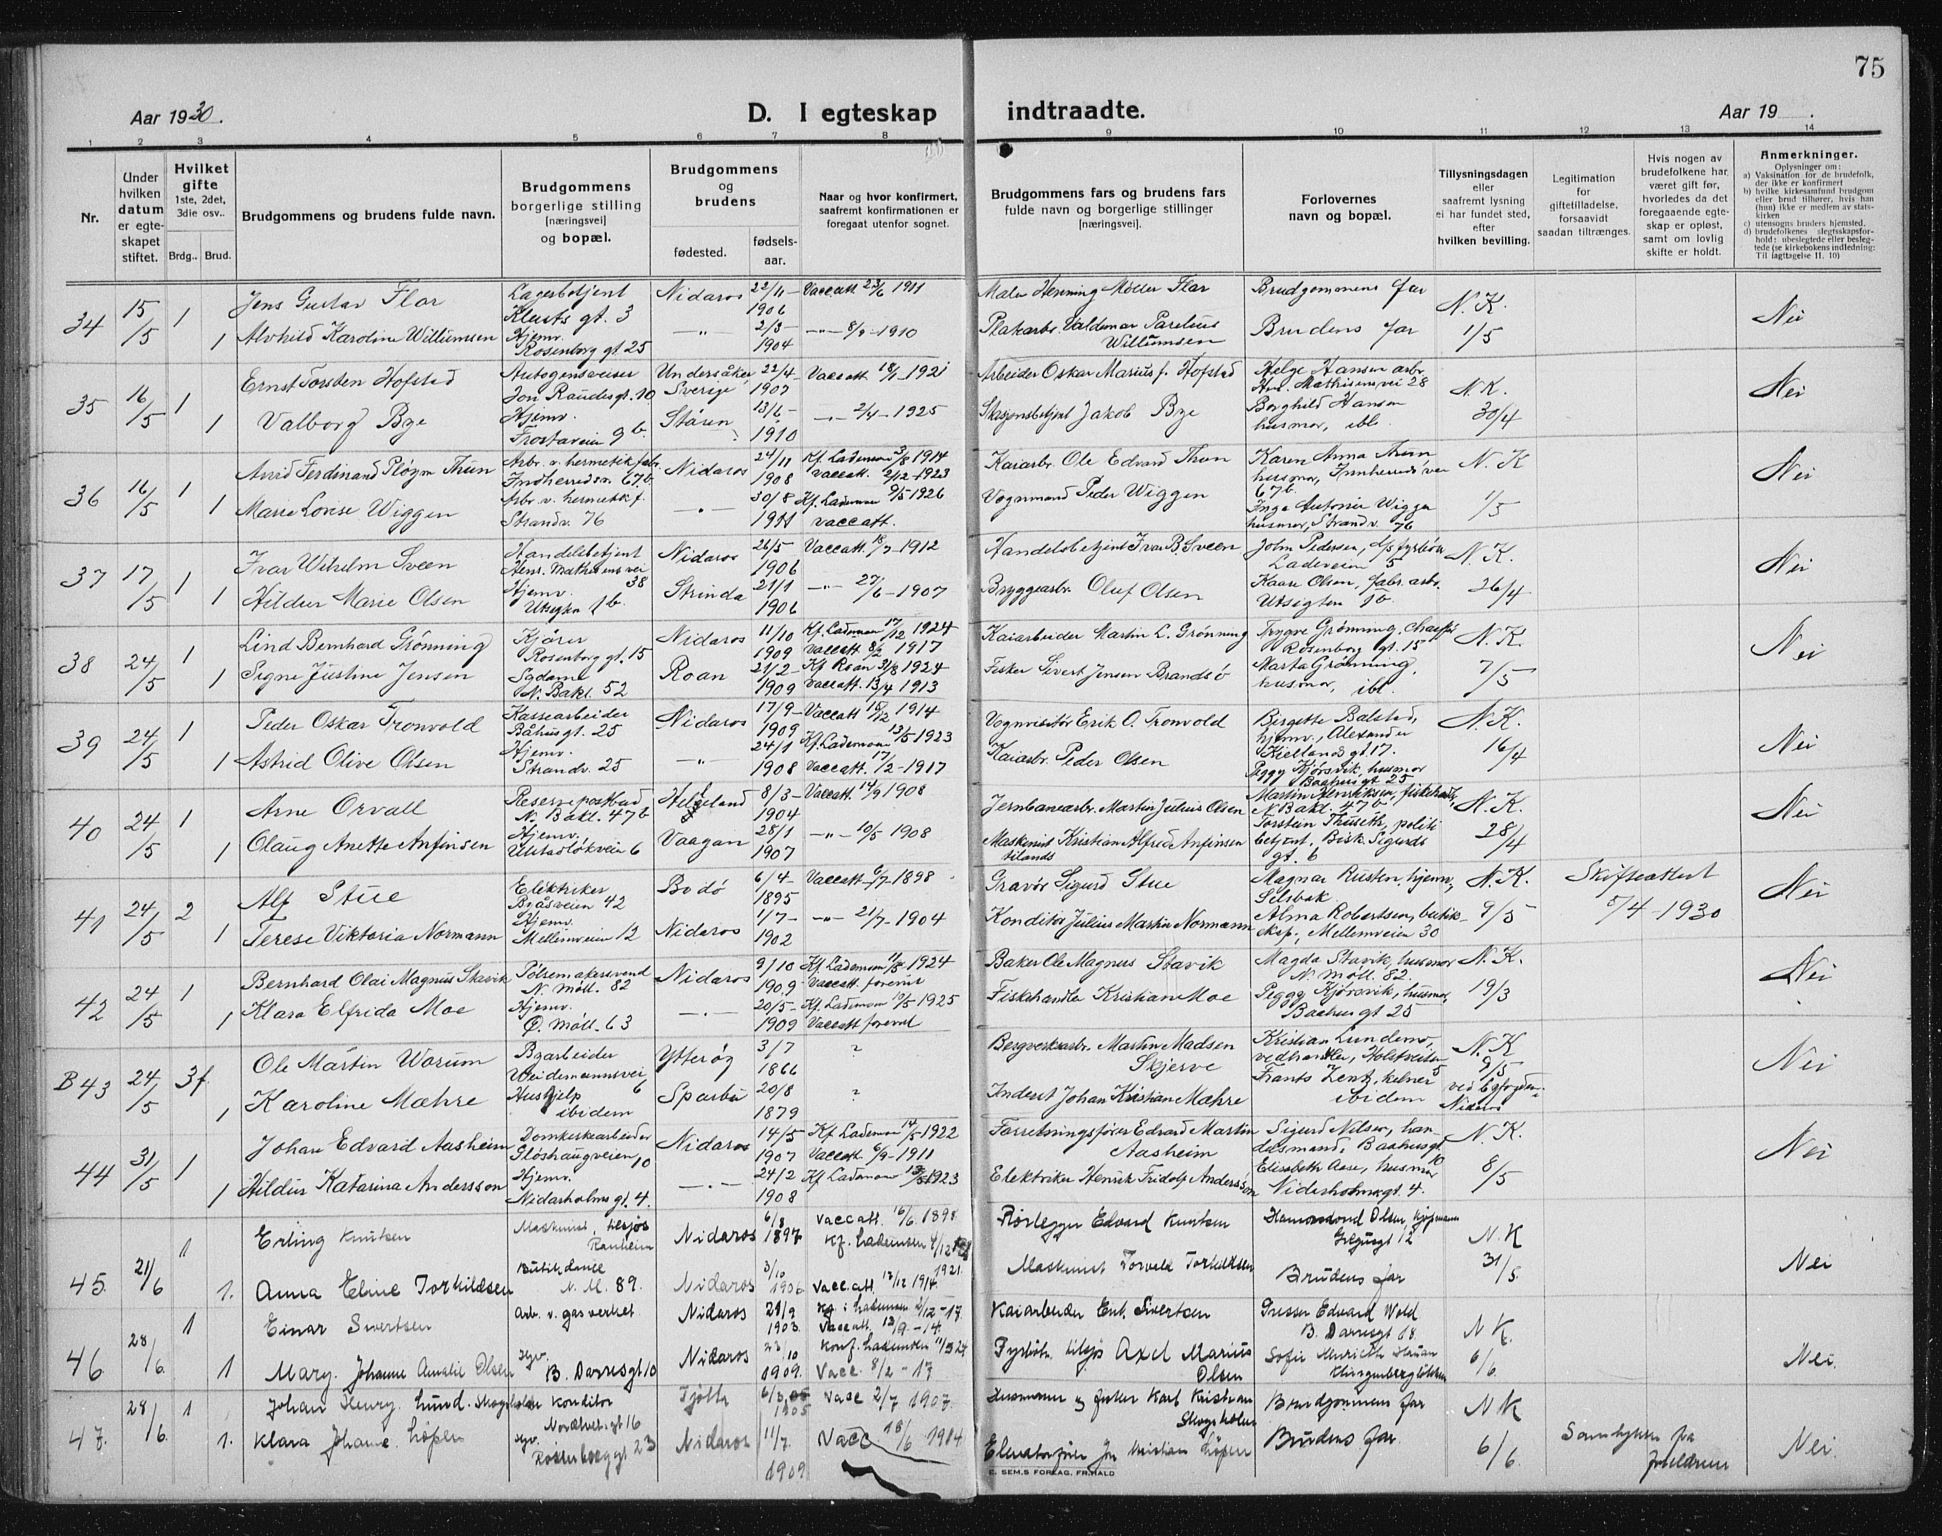 75
Aar 1930.
D. I egteskap indtraadte.
Aar 19 .
1 2 3 4 5 6 7 8 9 10 11 12 13 14
Nr.
Under hvilken datum er egteskapet stiftet.
Hvilket gifte 1ste, 2det, 3die osv..
Brdg.. Brud.
Brudgommens og brudens fulde navn.
Brudgommens borgerlige stilling [næringsvei] og bopæl.
Brudgommens og brudens
fødested. fødsels-aar.
Naar og hvor konfirmert, saafremt konfirmationen er foregaat utenfor sognet.
Brudgommens fars og brudens fars fulde navn og borgerlige stillinger [næringsvei].
Forlovernes navn og bopæl.
Tillysningsdagen eller saafremt lysning ei har fundet sted, efter hvilken bevilling.
Legitimation for giftetilladelse, forsaavidt saadan tiltrænges.
Hvis nogen av brudefolkene har været gift før, hvorledes da det foregaaende egteskap er opløst, samt om lovlig skifte er holdt.
Anmerkninger.
Oplysninger om:
a) Vaksination for de brudefolk, der ikke er konfirmert
b) hvilke kirkesamfund brudgom eller brud tilhører, hvis han (hun) ikke er medlem av statskirken
c) utensogns bruders hjemsted.
d) brudefolkenes slegtsskapsforhold: ubeslegtede eller beslegtede (se kirkebokens indledning: Til Iagttagelse II. 10)
34 15/5 1 Jens Gustav Flor Lagerbetjent Klosts gt. 3 Nidaros 22/11-1906 Vaccatt. 23/6 1911 Maler Henning Møller Flor Brudgommens far N.K. 1/5 Nei
1 Alvhild Karoline Willumsen Hjemv. Rosenborg gt 25 —"— 2/3-1904 —"— 8/9-1910 Platarb. Valdemar Parelius Willumsen Brudens far
35 16/5 1 Ernst Torsten Hofstad Autogensveiser Jon Raudesgt. 10 Undersåker Sverige 22/4 1907 Vaccatt 18/1-1921 Arbeider Oskar Marius f. Hofstad Helge Hansen arbr. Hans Mathisensvei 28 N.K. 30/4 Nei
1 Valborg Bye Hjemv. Frostaveien 9b Støren 13/6-1910 —"— 2/4-1925 Stasjonsbetjent Jakob Bye Borghild Hansen husmor, ibl.
36 16/5 1 Arvid Ferdinand Pløgm Thun Arbr. v. hermetikfabr. Indherredsv. 67b Nidaros 24/11 1908 Kf. Lademoen 3/8 1914 Vaccatt. 2/12-1923 Kaiarbr. Ole Edvard Thun Karen Anna Thun husmor, Innherredsvei 67b N.K 1/5 Nei
1 Marie Lovise Wiggen Arbr. v. hermetik f. Strandv. 76 —"— 30/8 1911 Kf. Lademoen 9/5-1926 vaccatt. Vognmand Peder Wiggen Inga Antonie Wiggen husmor, Strandv. 76
37 17/5 1 Ivar Wilhelm Sveen Handelsbetjent Hans. Mathisensvei 38 Nidaros 26/5 1906 Vaccatt. 18/7-1912 Handelsbetjent Ivar B. Sveen John Pedersen, Ladeveien 5 N.K. 26/4 Nei
1 Hildur Marie Olsen Hjemv. Utsigten 1b. Strinda 21/1 1906 —"— 27/6-1907 Bryggearbr. Oluf Olsen Kaare Olsen, fabr. arb. Utsigten 1b
38 24/5 1 Lind Bernhard Grønning Kjører Rosenborg gt. 15 Nidaros 11/10 1909 Kf. Lademoen 17/12 1924 Vaccatt 8/2 1917 Kaiarbeider Martin L. Grønning Trygve Grønning, chauffør Rosenborg gt. 15 N.K. 7/5 Nei
1 Signe Justine Jensen Sydame N. Bakl. 52 Roan 21/2-1909 Kf Roan 31/8 1924 Vaccatt. 13/4 1913 Fisker Sivert Jensen Brandsø Marta Grønning, husmor, ibl.
39 24/5 1 Peder Oskar Tronvold Kassearbeider Båhus gt. 25 Nidaros 17/9-1909 Vaccatt 15/12 1914 Vognvisitør Erik O. Tronvold Birgette Balstad, hjemv., Alexander Kiellands gt. 17. N.K. 16/4 Nei
1 Astrid Olive Olsen Hjemv. Strandv. 25 —"— 24/1 1908 Kf. Lademoen 13/5 1923 Vaccatt. 17/2-1917 Kaiarbr. Peder Olsen Peggy Kjørsvik, husmor Baahus gt 25
40 24/5 1 Arne Orvall Reservepostbud N. Bakl. 47b Helgeland 8/3-1904 Vaccatt. 14/9 1908 Jernbanearbr. Martin Julius Olsen Martin Henriksen, fiskehandl., N. Bakl. 47b N.K. 28/4 Nei
1 Olaug Anette Anfinsen Hjemv. Ulstadløkveien 6 Vaagan 28/1 1907 —"— 10/5 1908 Maskinist Kristian Alfred Anfinsen utilands Torstein Thuseth, politibetjent, Bisk. Sigurds gt. 6
41 24/5 2 Alf Stue Elektriker Byåsveien 42 Bodø 6/4-1895 Vaccatt 6/7-1898 Gravør Sigurd Stue Magnar Rusten, hjemv. Selsbak N.K. 9/5 Skifteattest 5/4-1930 Nei
1 Terese Viktoria Normann Hjemv. Mellemveien 12 Nidaros 1/7-1902 —"— 21/7-1904 Konditor Julius Martin Normann Alma Robertsen, butikeksp., Mellemveien 30
42 24/5 1 Bernhard Olai Magnus Stavik Pølsemakersvend N. Møll. 82 Nidaros 9/10 1909 Kf. Lademoen 11/5 1924 Vaccatt forevist Baker Ole Magnus Stavik Magda Stavik, husmor N. Møll. 82. N.K. 19/3 Nei
1 Klara Elfrida Moe Hjemv. Ø. Møll. 63 —"— 20/5-1909 Kf. Lademoen 10/5 1925 Vaccatt forevist Fiskehandler Kristian Moe Peggy Kjørsvik, husmor, Baahus gt 25
B 43 24/5 3f. Ole Martin Worum Byarbeider Weidemannsvei 6 Ytterøy 3/7 1866 ? Bergverksarbr. Martin Madsen Skjerve Kristian Lundemo, vedhandler, Holstveiten 5 N.K 9/5 ved Byfogden i Nidaros Nei
1 Karoline Mæhre Hushjelp ibidem Sparbu 20/8 1879 ? Inderst Johan Kristian Mæhre Frants Zentz, kelner ibidem
44 31/5 1 Johan Edvard Aasheim Domkirkearbeider Gløshaugveien 10 Nidaros 14/5 1907 Kf Lademoen 14/5-1922 Vaccatt 6/9-1911 Forretningsfører Edvard Martin Aasheim Sigurd Nilsen, handelsmand, Baahusgt. 10 N.K. 8/5 Nei
1 Hildur Katarina Andersson Hjemv. Nidarholms gt. 4. —"— 24/2 1908 Kf Lademoen 13/5 1923 Elektriker Henrik Fridolf Andersson Elisabeth Aase, husmor Nidarholms gt. 4.
45. 21/6 1 Erling Knutsen Maskinist, tilsjøs Ranheim Nidaros 6/8 1897 Vaccatt. 16/6. 1898 Kf. Lademoen 4/12 1921. Rørlegger Edvard Knutsen Olsen, kjøpmann N.K 31/5. Nei
1. Anna Eline Torkildsen Butikdame N. M. 89. Nidaros 3/10 1906 Vaccatt 17/12 1914 Maskinist Torvald Torkildsen Brudens far
46 28/6. 1 Einar Sivertsen Arb. v. gasverket Nidaros 29/9 1903. Kf. i Lademoen 2/12-17. Vaccatt. 12/9-14. Kaiarbeider Ent. Sivertsen Presser Edvard Wold B. Darresgt 68. N K. 6/6. Nei.
1 Mary. Johanne Amalie Olsen Hjv. B. Darresgt 10 Nidaros 23/10 1909. Konf. Lademoen 11/5 24 Vacc. 8/2-17 Fyrbøter tilsjøs Axel Marius Olsen Sofie Klingenbergløkken
47. 28/6. 1 Johan Henry. Lund. Skogsholm Konditor Nordtver.gt 16 Tjøtta 6/3 1905 Vacc 2/7 1907. Husmann og fisker Karl Kristian Skogsholm Brudgommens far N K 6/6. Samtykke fra foreldrene Nei
1. Klara Johanne Løpen Hjv. Rosenborg gt 23 Nidaros 11/7 1909 Vacc 18/6 1914 Elevatorfører Jon Kristian Løpen Brudens far.
E. SEM.S FORLAG, FR.HALD